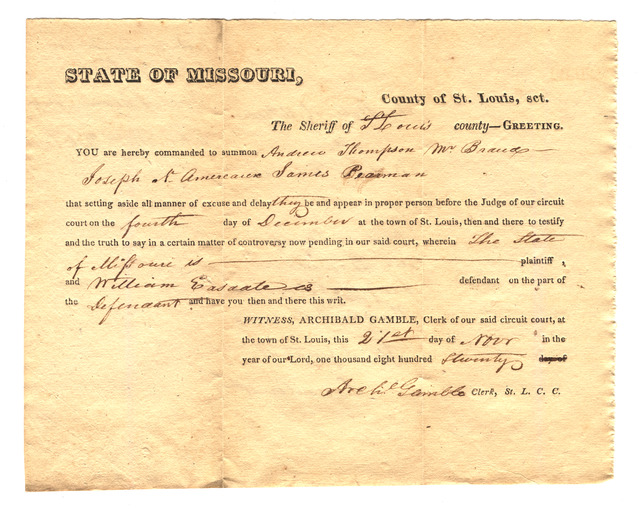 STATE OF MISSOURI,
County of St. Louis, sct.
The Sheriff of St Louis county—GREETING.
YOU are hereby commanded to summon Andrew Thompson Mr
Joseph James Pearman
that setting aside all manner of excuse and delay they be and appear in proper person before the Judge of our circuit
court on the fourth day of December at the town of St. Louis, then and there to testify
and the truth to say in a certain matter of controversy now pending in our said court, wherein The State
of Missouri is plaintiff,
and William is defendant on the part of
the Defendant and have you then and there this writ.
WITNESS, ARCHIBALD GAMBLE, Clerk of our said circuit court, at
the town of St. Louis, this 21st day of Novr in the
year of our Lord, one thousand eight hundred & twenty day of
Archd Gamble Clerk, St. L. C. C.